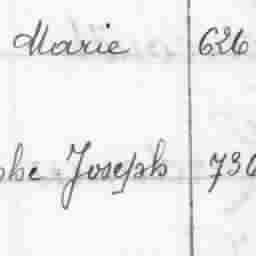 Marie 626
phe Joseph 736